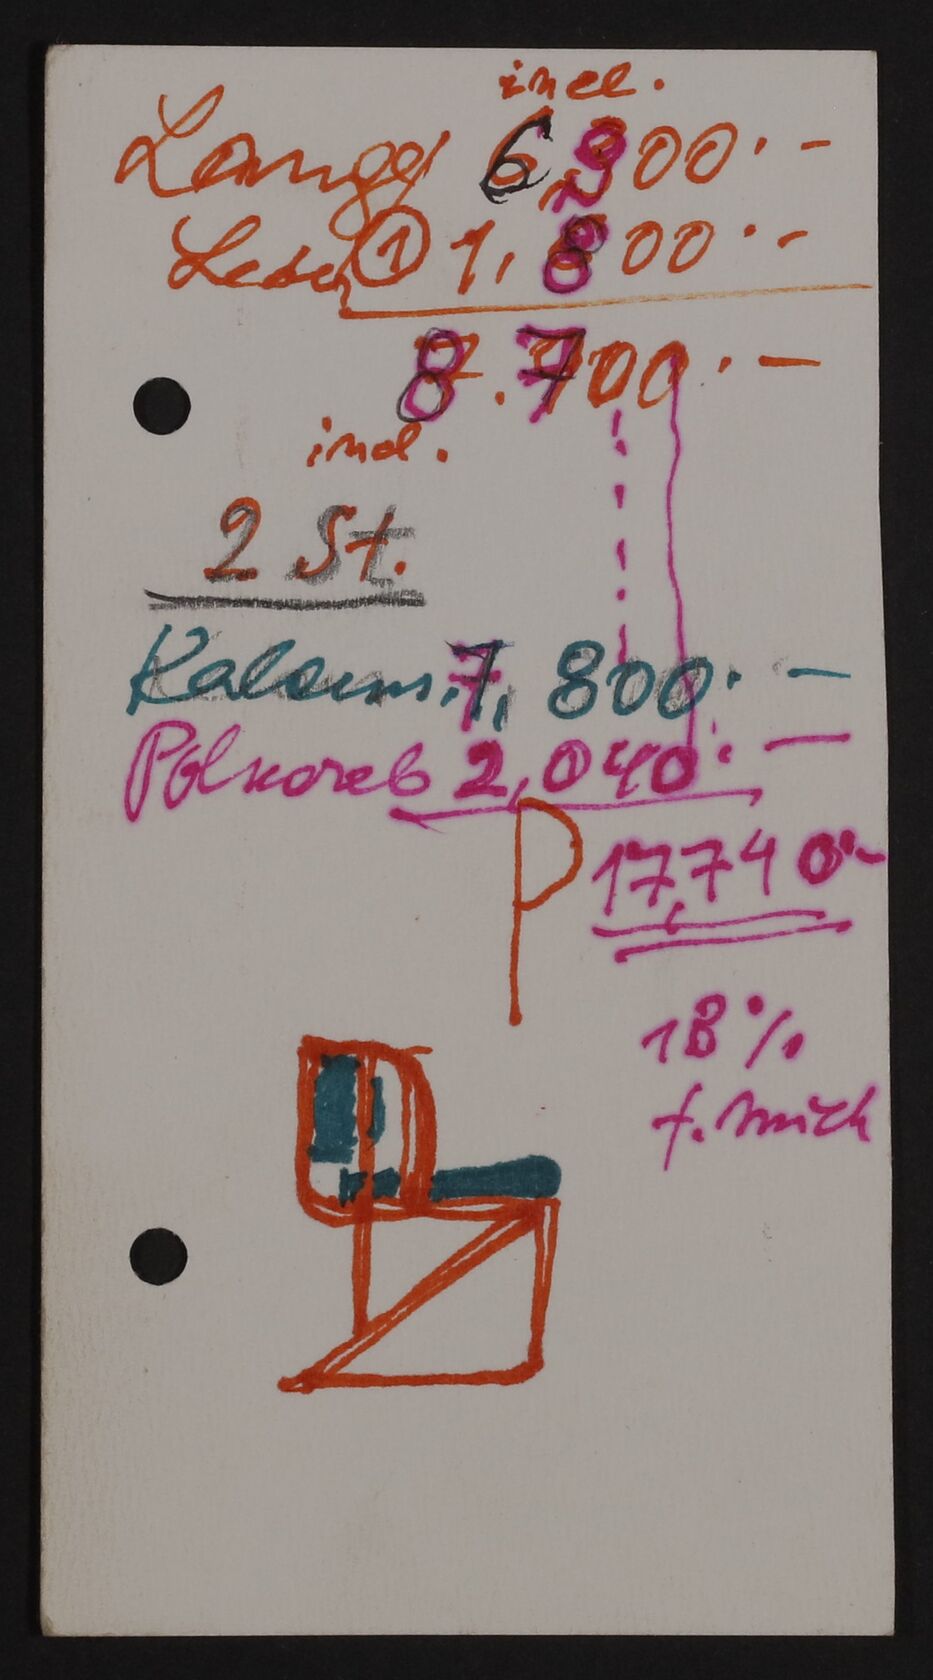 incl.
6,900.-
① 1,800.-
8.700.-
incl.
2 St.
7,800.-
2,040.-
17,740.-
18%
f. mich